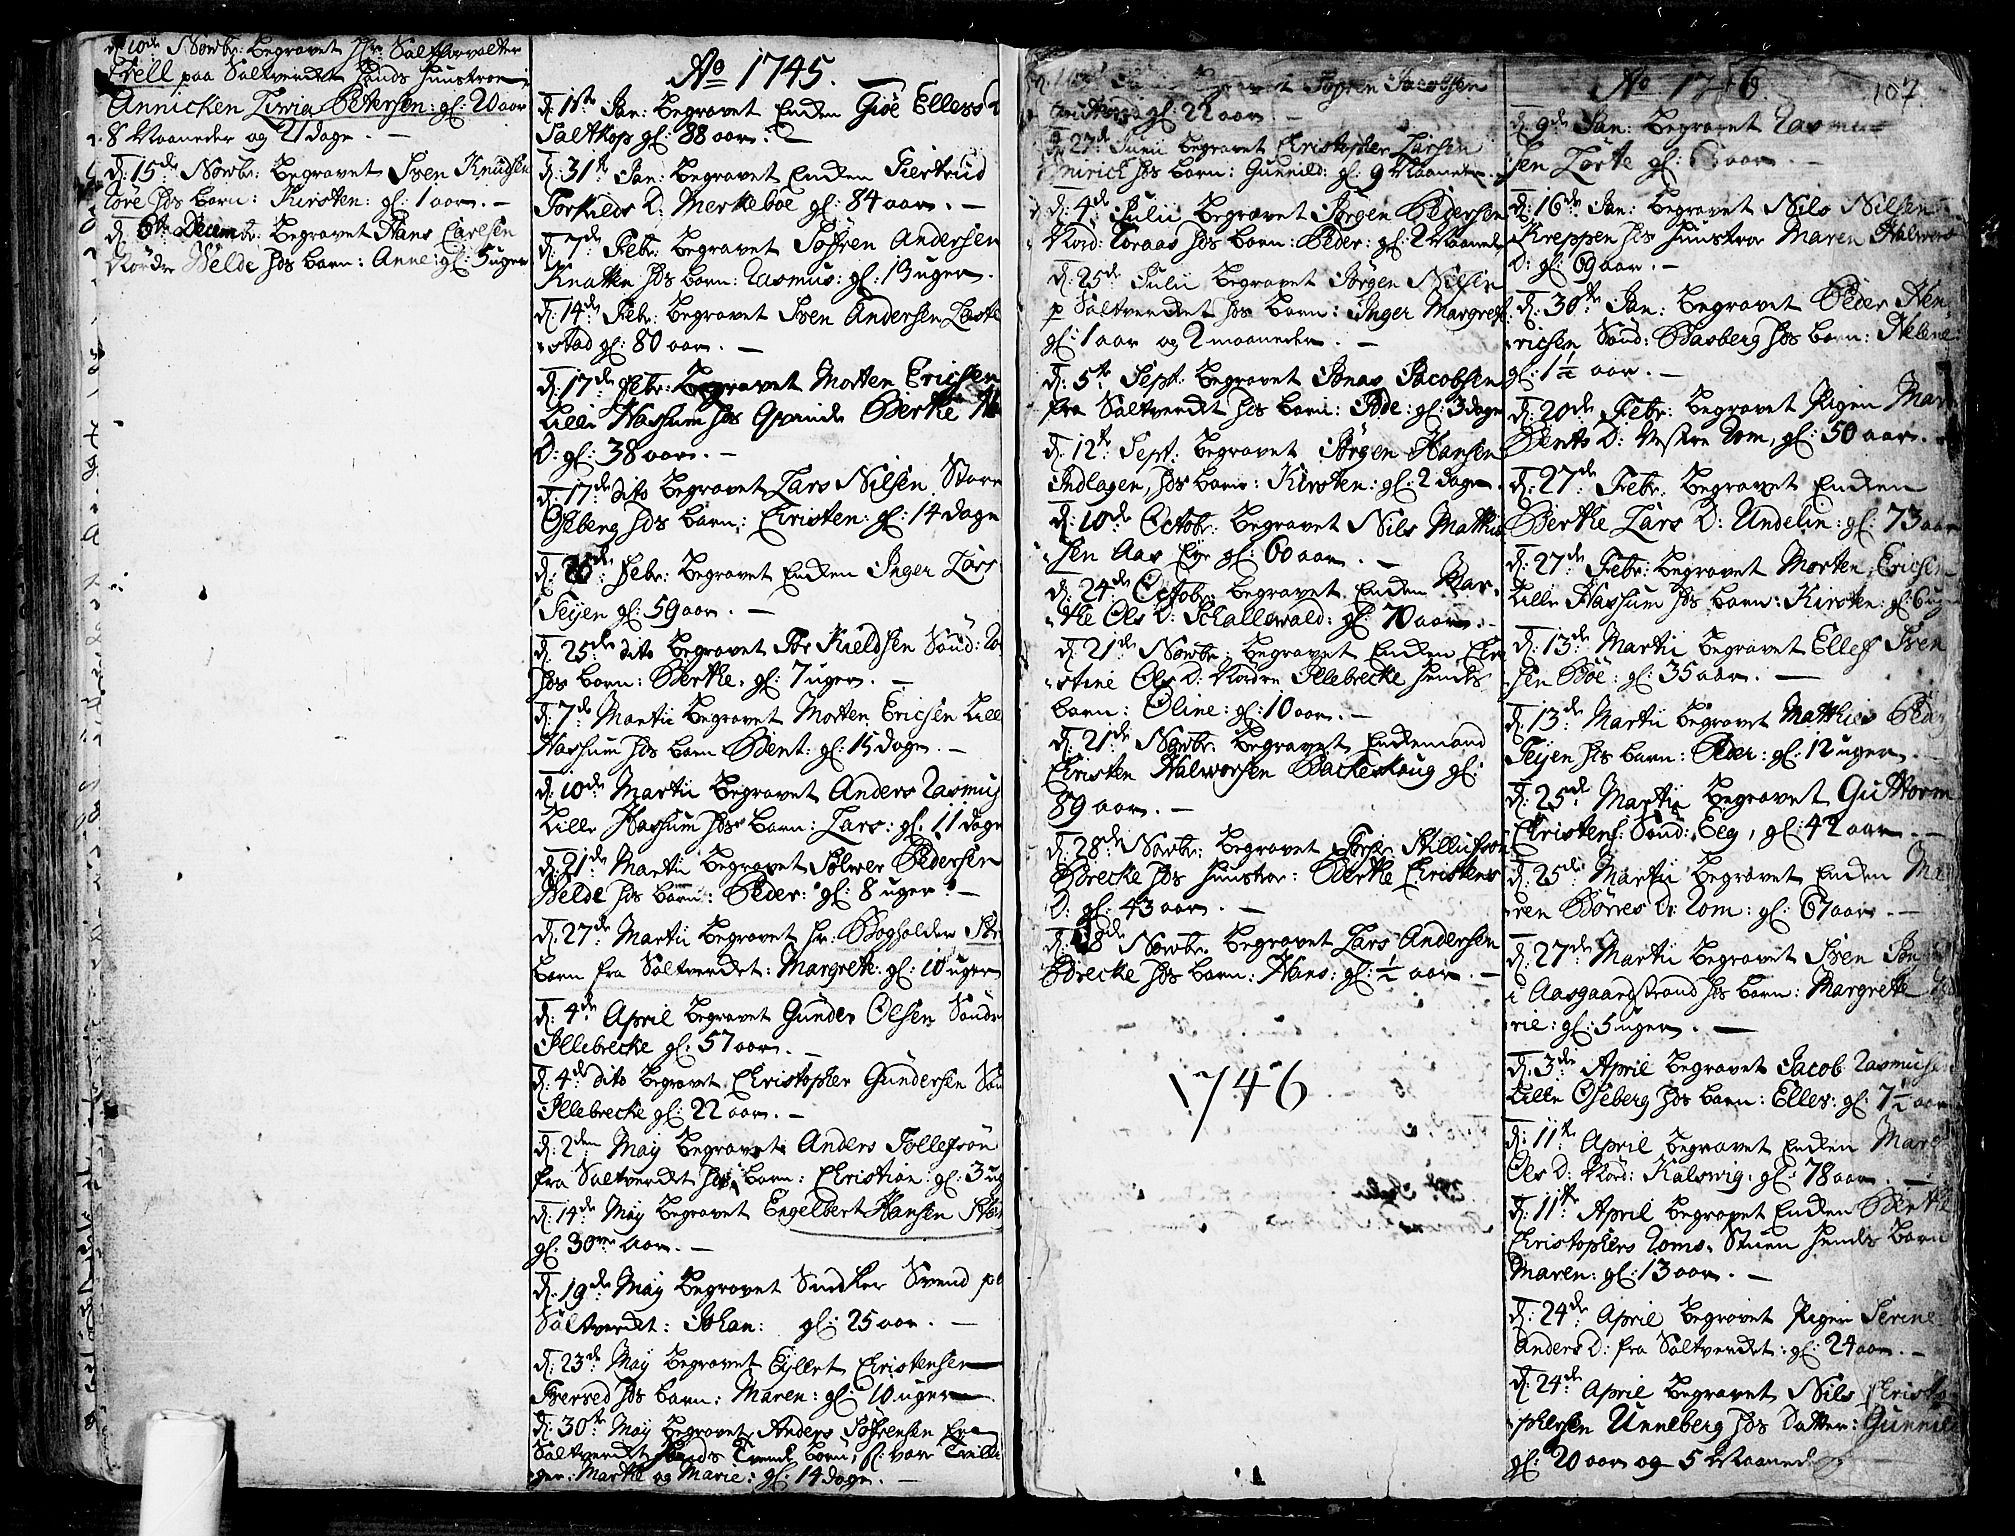 d. 10de Novbr: begravet Hr Saltforvalter
Prell paa Saltverchet hands hustroe
Annichen Livia Petersen: gl: 20 aar
8 Maaneder og 21 dage. —
d: 15de Novbr: begravet Sven Knudsen
Töre hds barn: Kirsten: gl: 1 aar. —
d. 6te Decembr: begravet Hans Carlsen
Nördre Velde hds barn: Anne: gl: 5 uger
Ao 1745. —
d: 1ste Jan: begravet Enchen Giöe Ellefs
Saltkop gl: 88 aar. —
d: 31te Jan: begravet Enchen Siertrud
Torkilds D: Merkeboe gl: 84 aar. —
d: 7de Febr: begravet Söffren Andersen
Knatten hds barn: Rasmus: gl: 13 uger.
d: 14de Febr: begravet Sven Andersen
stad gl: 80 aar. —
d: 17de Febr: begravet Morten Ericsen
Lille Hashum hds Qvinde Berthe
D: gl: 38 aar. —
d: 17de dito begravet Lars Nilsen Store
Oseberg hds barn: Christen: gl: 14 dage
d: Febr: begravet Enchen Inger Lars
Teyen gl: 59 aar. —
d: 25de dito begravet Tor Kieldsen Sönd:
hds barn: Berthe: gl: 7 uger. —
d: 7de Martii begravet Morten Ericsen Lille
Hashum hds barn Bent: gl: 15 dage. —
d: 10de Martii begravet Anders Rasmus
Lille Hashum hds barn: Lars: gl: 11 dage
d: 21de Martii begravet Sölwer Pedersen
Velde hds barn: Peder: gl: 8 uger. —
d: 27de Martii begravet Hr: Bogholder
barn fra Saltverchet: Margrete: gl: 10 uger
d: 4de April begravet Gunder Olsen Söndr
Illebrecke gl: 57 aar. —
d: 4de dito begravet Christopher Gundersen Sön
Illebrecke gl: 22 aar. —
d: 2den May begravet Anders Tollefsön
fra Saltverchet hds barn: Christian: gl: 3 ug
d: 14de May begravet Engelbert Hansen
gl: 30ve aar. —
d: 19de May begravet Snidker Svend p
Saltverchet: Johan: gl: 25 aar. —
d: 23de May begravet Eyllert Christensen
Bersed hds barn: Maren: gl: 10 uger
d: 30te May begravet Anders Söfrensen fra
Saltverchet hands Tvende börn, sl: var Tvilli
ger: Marthe og Marie: gl: 14 dage. —
begravet Jörgen Jacobsen
gl: 22 aar. —
d: 27de Junii begravet Christopher Larsen
hds barn: Gunnild: gl: 9 Maaneder.
d: 4de Julii begravet Jörgen Pedersen
Nord: Toraas hds barn: Peder: gl: 2 Maaneder
d: 25de Julii begravet Jörgen Nilsen
p Saltverchet hds barn: Inger Margret
gl: 1 aar og 2 maaneder. —
d: 5te Sept: begravet Jonas Jacobsen
fra Saltverchet hds barn: Bode: gl: 3 dage
d: 12te Sept: begravet Jörgen Hansen
Indlagen, hds barn: Kirsten: gl: 2 dage.
d: 10de Octobr: begravet Nils Mathia
sen Aas Eye gl: 60 aar. —
d: 24de Octobr: begravet Enchen Mar-
the Ols D: Schallewald: gl: 70 aar. —
d: 21de Novbr: begravet Enchen Chri
stine Ols D: Nordre Illebrecke hends
barn: Oline: gl: 10 aar. —
d: 21de Novbr: begravet Enchemand
Christen Halworsen Backeskoug gl:
89 aar. —
d: 28de Novbr: begravet Stillufsen
Brecke hds hustroe: Berthe Christens
D: gl: 43 aar. —
d: 28de Novbr: begravet Lars Andersen
Brecke hds barn: Hans: gl: ½ aar. —
1746
Ao 1746.
107.
d: 9de Jan: begravet Rasmu=
sen Lörte gl: aar. —
d: 16de Jan: begravet Nils Nilsen
Kreppen hds hustroe Maren Halwors
D: gl: 69 aar. —
d: 30te Jan: begravet Peder Hen
richsen Sönd: Basberg hds barn: Helene
gl: 1½ aar. —
d: 20de Febr: begravet Pigen Mar
Bents D: Vestre Rom, gl: 50 aar.
d: 27de Febr: begravet Enchen
Berthe Lars D: Undelin: gl: 73 aar
d: 27de Febr: begravet Morten Ericsen
Lille Hashum hds barn: Kirsten: gl: 6 uger
d: 13de Martii begravet Ellef Sven
sen Böe: gl: 35 aar. —
d: 13de Martii begravet Mathies Peder
Teyen hds barn: Peder: gl: 12 uger. —
d: 25de Martii begravet Guttorm
Christens: Sönd: Eeg, gl: 42 aar. —
d: 25de Martii begravet Enchen Ma
ren Börres D: Rom: gl: 67 aar. —
d: 27de Martii begravet Sven
i Aasgaardstrand hds barn: Margrethe
rie: gl: 5 uger. —
d: 3die April begravet Jacob Rasmuse
Lille Oseberg hds barn: Elles: gl: 7½ aar
d: 11te April begravet Enchen Mar
Ols D: Nord: Kalswig: gl: 78 aar. —
d: 11te April begravet Enchen Berthe
Christophers Roms. Stuen hends barn
Maren: gl: 13 aar. —
d: 24de April begravet Pigen Serine
Anders D: fra Saltverchet: gl: 24 aar. —
d: 24de April begravet Nils Christo
phersen Unneberg hds datter: Gunnild
gl: 20 aar og 5 Maaneder